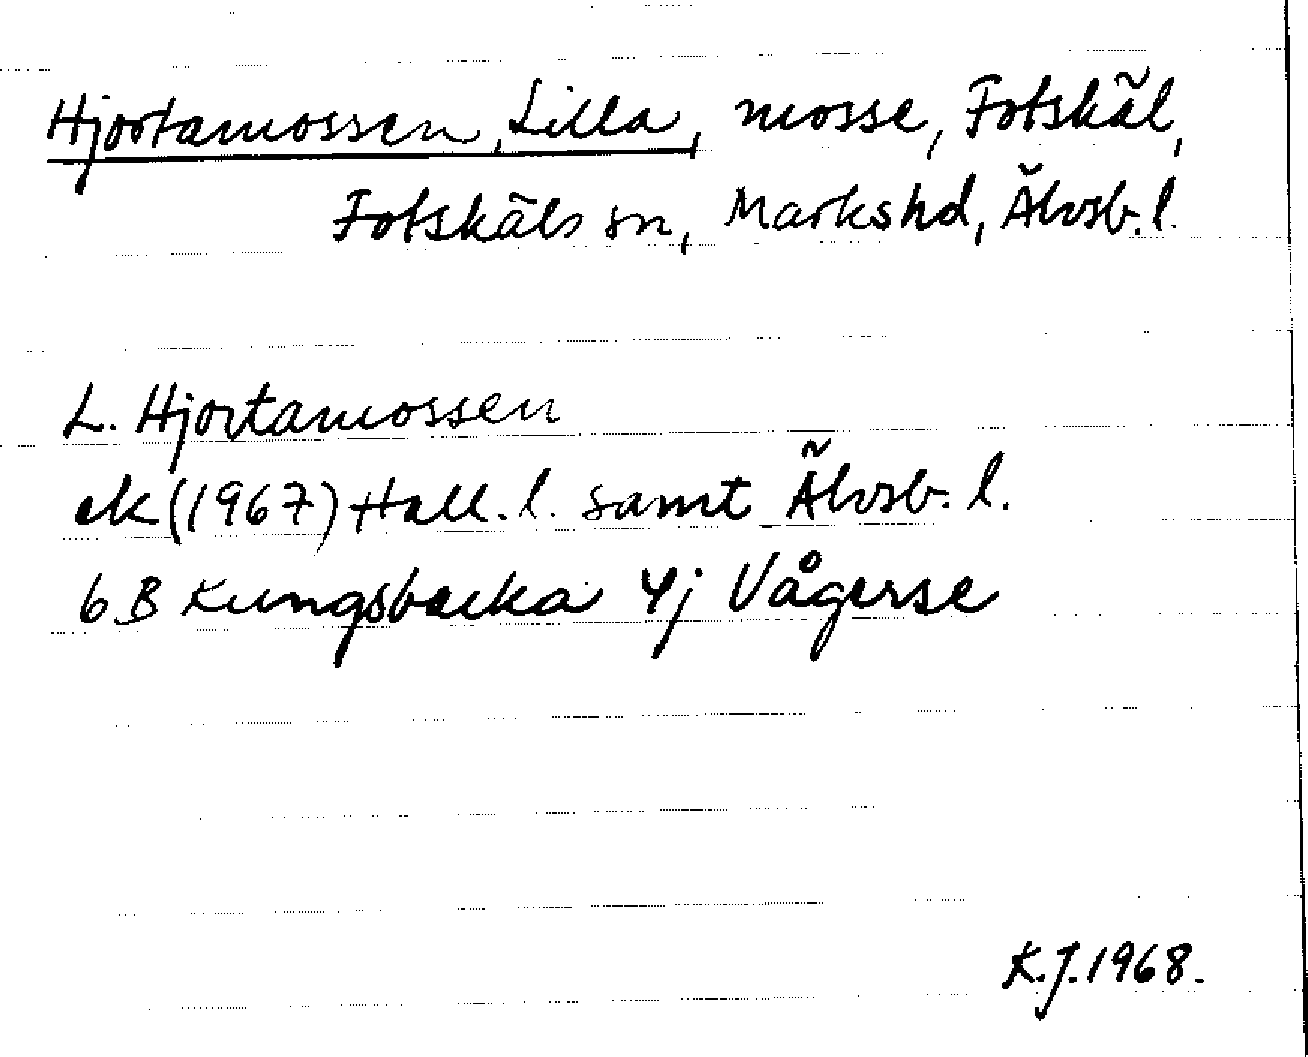 Hjortamossen, Lilla, mosse, Fotskäl,
Fotskäls sn, Marks hd, Älvsb. l.
L. Hjortamossen
ek (1967) Hall. l. samt Älvsb. l.
6 B Kungsbacka 4j Vågerse
K.J. 1968.